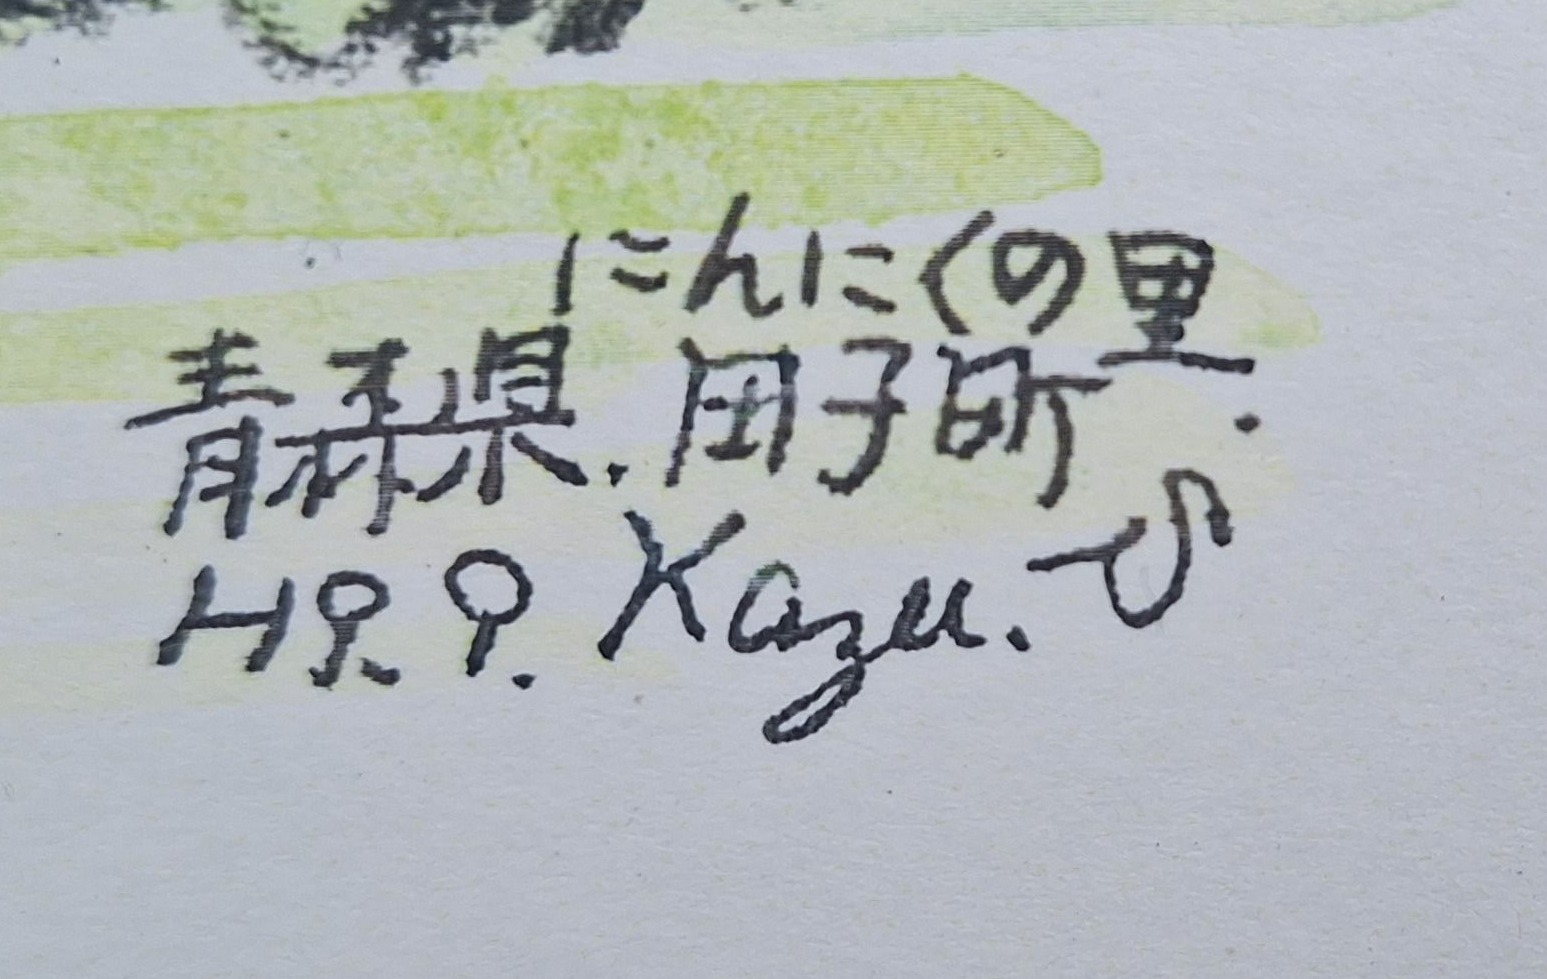 にんにくの里.
青森県.田子町
H2.9. Kazu.